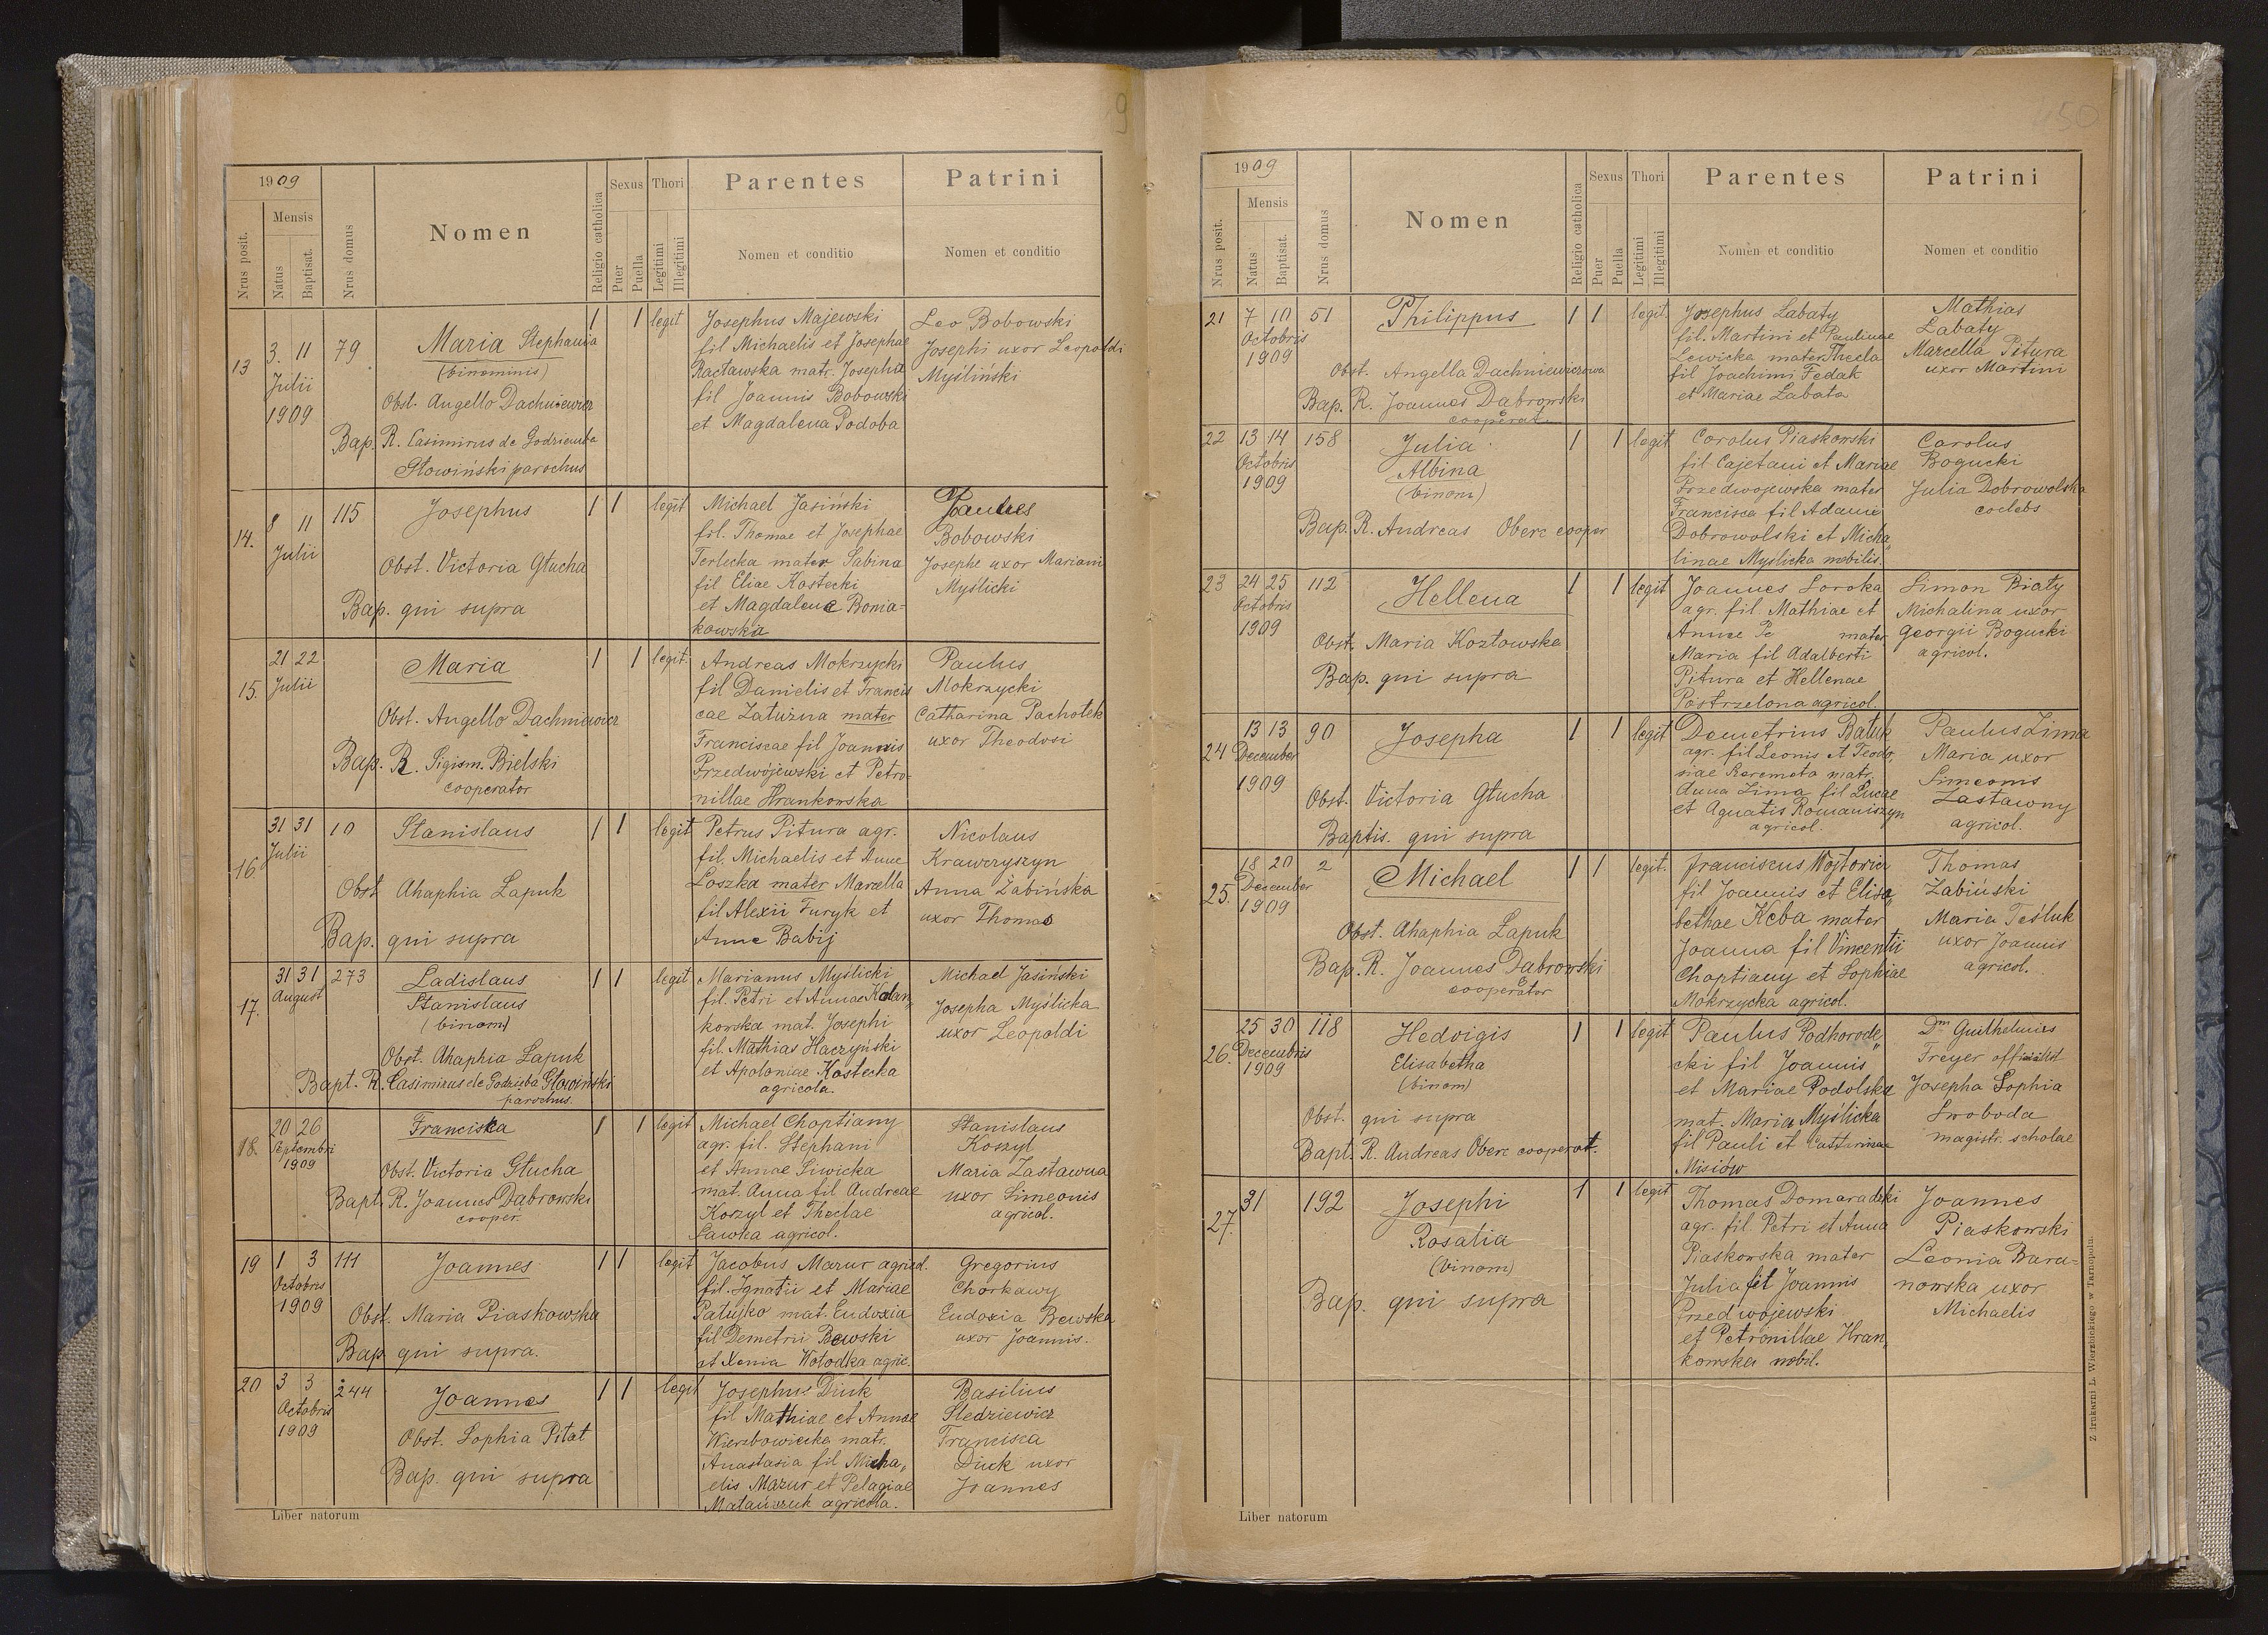 9
1909
Nrus posit.
Mensis
Natus
Baptisat.
Nrus domus
Nomen
Religio catholica
Sexus
Puer
Puella
Thori
Legitimi
Illegitimi
Parentes
Nomen et conditio
Patrini
Nomen et conditio
13
3. 11
Julii
1909
79
Maria Stephania
(binominis)
Obst. Angello Dachniewicz
Bap. R. Casimirus de Godziemba
Słowiński parochus
1 1 legit
Josephus Majewski
fil Michaelis et Josephae
Racławska matr. Josepha
fil Joannis Bobowski
et Magdalena Podoba
Leo Bobowski
Josephi uxor Leopoldi
Myśliński
14.
8 11
Julii
115
Josephus
Obst. Victoria Głucha
Bap. qui supra
1 1 legit
Michael Jasiński
fil. Thomae et Josephae
Terlecka mater Sabina
fil Eliae Kostecki
et Magdalena Bonia-
kowska
Joannes
Bobowski
Josephe uxor Mariani
Myślicki
15.
21 22
Julii
Maria
Obst. Angello Dachniewicz
Bap. R. Sigism. Bielski
cooperator
1 1 legit.
Andreas Mokrzycki
fil Danielis et Francis
cae Załużna mater
Franciscae fil Joannis
Przedwójewski et Petro-
nillae Hrankowska
Paulus
Mokrzycki
Catharina Pachołek
uxor Theodosi
16.
31 31
Julii
10
Stanislaus
Obst Ahaphia Łapuk
Bap. qui supra
1 1 legit
Petrus Pitura agr.
fil. Michaelis et Anne
Loszka mater Marcella
fil Alexii Furyk et
Anne Babij
Nicolaus
Krawczyszyn
Anna Żabińska
uxor Thomas
17.
31 31
August
273
Ladislaus
Stanislaus
(binom)
Obst. Ahaphia Łapuk
Bapt. R. Casimirus de Godzieba Słowiński
parochus.
1 1 legit
Marianus Myślicki
fil. Petri et Annae Kolan,
kowska mat. Josephi
fil. Mathias Haczyński
et Apoloniae Kostecka
agricola
Michael Jasiński
Josepha Myślicka
uxor Leopoldi
18.
20 26
Septembri
1909
Franciska
Obst. Victoria Głucha
Bapt. R. Joannes Dąbrowski
cooper.
1 1 legit
Michael Choptiany
agr. fil. Stephani
et Annae Siwicka
mat. Anna fil Andreae
Korzyl et Theclae
Sawka agricol.
Stanislaus
Koszyl
Maria Zastawna
uxor Simeonis
agricol.
19
1 3
Octobris
1909
111
Joannes
Obst. Maria Piaskowska
Bap qui supra.
1 1 legit
Jacobus Mazur agricol.
fil. Ignatii et Mariae
Patujko mat. Eudoxia
fil Demetrii Bewski
et Xenia Wołodka agric.
Gregorius
Chorkawy
Eudoxia Bewska
uxor Joannis.
20
3 3
Octobris
1909
244
Joannes
Obst. Sophia Pitat
Bap. qui supra
1 1 legit
Josephus Diuk
fil Mathiae et Annae
Wierzbowiecka matr.
Anastasia fil Micha,
elis Mazur et Pelagiae
agricola.
Basilius
Śledziewicz
Francisca
Diuk uxor
Joannes
Liber natorum
450
1909
Nrus posit.
Mensis
Natus
Baptisat.
Nrus domus
Nomen
Religio catholica
Sexus
Puer
Puella
Thori
Legitimi
Illegitimi
Parentes
Nomen et conditio
Patrini
Nomen et conditio
21
7 10
Octobris
1909
51
Philippus
Obst. Angella Dachniewiczowa
Bap. R. Joannes Dąbrowski
cooperat
1 1 legit.
Josephus Labaty
fil. Martini et Paulinae
Lewicka mater Thecla
fil Joachimi Fedak
et Mariae Labata
Mathias
Labaty
Marcella Pitura
uxor Martini
22
13 14
Octobris
1909
158
Julia
Albina
(binom)
Bap. R. Andreas Oberc cooper
1 1 legit
Carolus Piaskowski
fil Cajetani et Mariae
Przedwojewska mater
Francisca fil Adami
Dobrowolski et Micha,
linae Myślicka nobilis.
Carolus
Bogucki
Julia Dobrowolska
coelebs
23
24 25
Octobris
1909
112
Hellena
Obst. Maria Kozłowska
Bap. qui supra
1 1 legit
Joannes Soroka
agr. fil. Mathiae et
Annae Pe mater
Maria fil Adalberti
Pitura et Hellenae
Postrzelona agricol.
Simon Biały
Michalina uxor
Georgii Bogucki
agricol.
24
13 13
December
1909
90
Josepha
Obst. Victoria Głucha
Baptis. qui supra
1 1 legit
Demetrius Batuk
agr. fil Leonis et Teodo,
siae Keremeta matr.
Anna Zima fil Lucae
et Agnatis Romaniszyn
agricol.
Paulus Zima
Maria uxor
Simeonis
Zastawny
agricol.
25.
18 20
December
1909
2
Michael
Obst. Ahaphia Łapuk
Bap. R. Joannes Dąbrowski
cooperator
1 1 legit.
Franciscus Wojtowicz
fil Joannis et Elisa,
bethae Keba mater
Joanna fil Vincentii
Choptiany et Sophiae
Mokrzycka agricol.
Thomas
Żabiński
Maria Teśluk
uxor Joannis
agricol.
26.
25 30
Decembris
1909
118
Hedvigis
Elisabetha
(binom)
Obst. qui supra
Bapt. R. Andreas Oberc cooperat.
1 1 legit
Paulus Podhorode,
cki fil Joannis
et Mariae Podolska
mat. Maria Myślicka
fil Pauli et Catherinae
Misiów
Dm Guilhelmus
Freyer
Josepha Sophia
Swoboda
magistr. scholae
27.
31
192
Josephi
Rosalia
(binom)
Bap. qui supra
1 1 legit
Thomas Domaradzki
agr. fil. Petri et Anna
Piaskowska mater
Julia fil Joannis
Przedwojewski
et Petronillae Hran,
kowska nobil.
Joannes
Piaskowski
Leonia Bara-
nowska uxor
Michaelis
Liber natorum
Z drukarni L. Wierzbickiego w Tarnopolu.